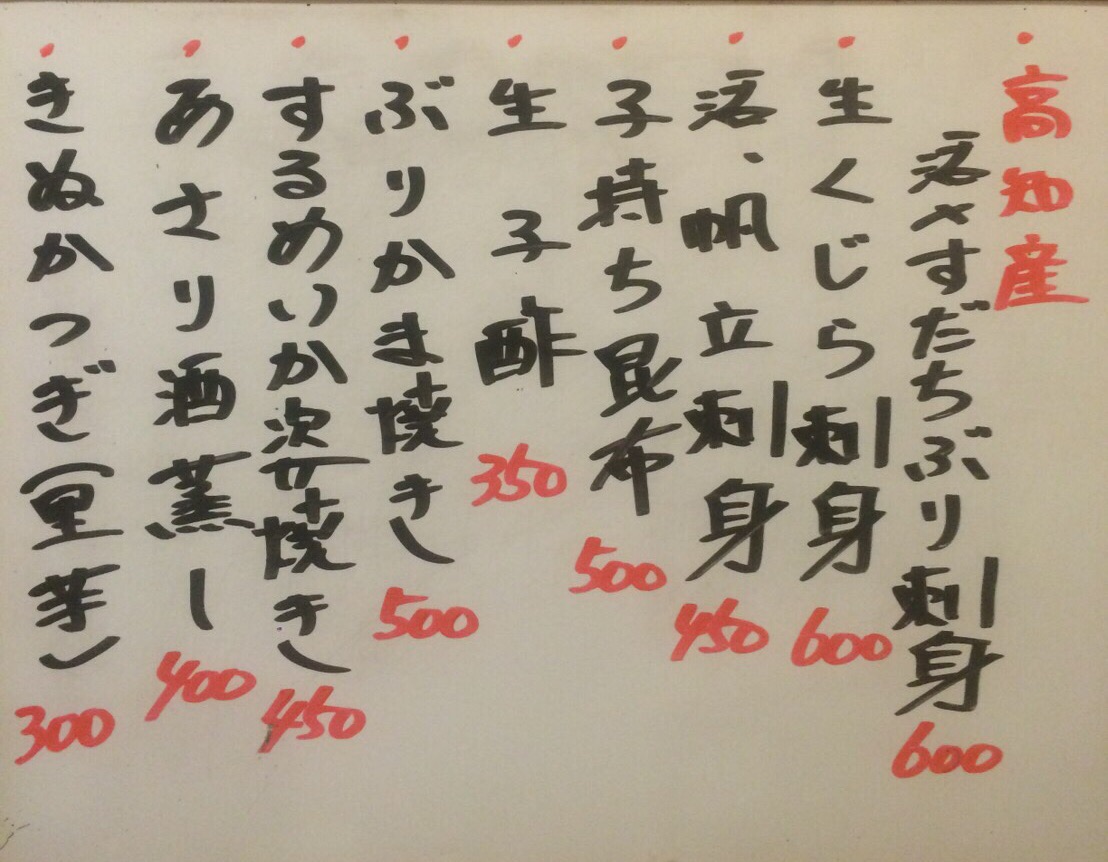 ・高知産
活〆すだちぶり刺身 600
・生くじら刺身 600
・活、帆立刺身 450
・子持ち昆布 500
・生子酢 350
・ぶりかま焼き 500
・するめいか姿焼き 450
・あさり酒蒸し 400
・きぬかつぎ(里芋) 300